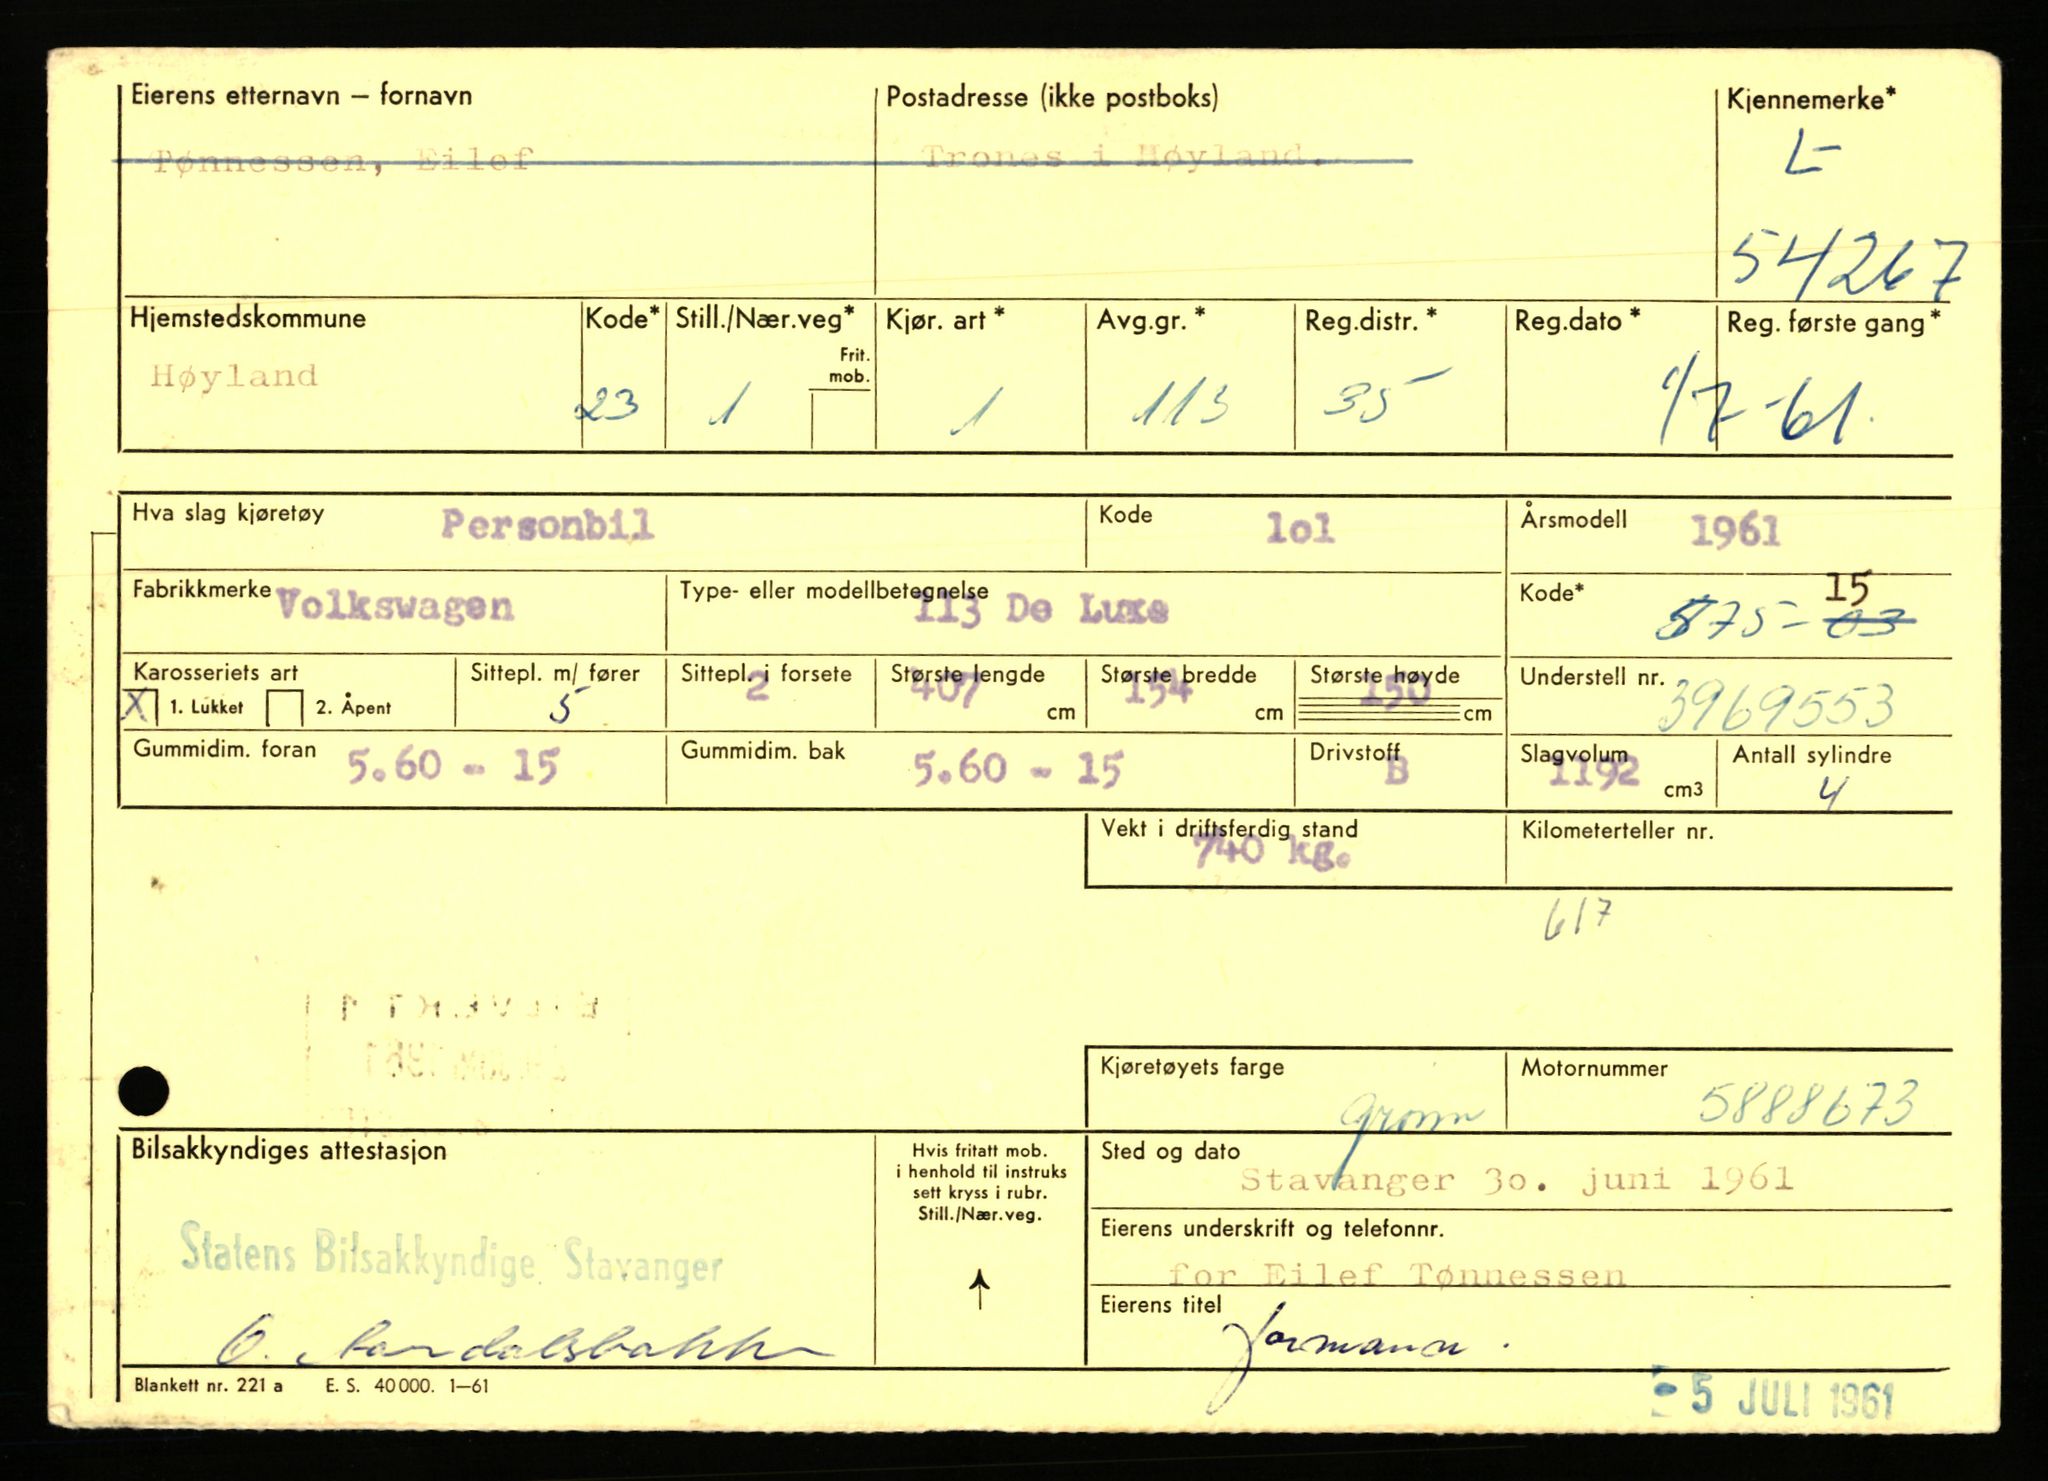 Eierens etternavn – fornavn
Postadresse (ikke postboks)
Kjennemerke*
Tønnessen, Eilef
Trones i Høyland.
L-
54267
Hjemstedskommune
Kode*
Still./Nær.veg*
Kjør. art *
Avg.gr. *
Reg.distr. *
Reg.dato *
Reg. første gang *
Frit.
mob.
Høyland
23
1
1
113
35
1/7-61.
Hva slag kjøretøy
Personbil
Kode
1o1
Årsmodell
1961
Fabrikkmerke
Volkswagen
Type- eller modellbetegnelse
113 De Luxe
Kode*
15
875-03
Karosseriets art
Sittepl. m/ fører
Sittepl. i forsete
Største lengde
Største bredde
Største høyde
Understell nr.
X 1. Lukket
2. Åpent
5
2
407 cm
154 cm
150 cm
3969553
Gummidim. foran
5.60 - 15
Gummidim. bak
5.60 - 15
Drivstoff
B
Slagvolum
1192 cm3
Antall sylindre
4
Vekt i driftsferdig stand
740 kg.
Kilometerteller nr.
617
Kjøretøyets farge
grønn
Motornummer
5888673
Bilsakkyndiges attestasjon
Hvis fritatt mob.
i henhold til instruks
sett kryss i rubr.
Still./Nær.veg.
Sted og dato
Stavanger 3o. juni 1961
Eierens underskrift og telefonnr.
for Eilef Tønnessen
Statens Bilsakkyndige, Stavanger
Eierens titel
formann.
Blankett nr. 221 a E. S. 40 000. 1–61
- 5 JULI 1961